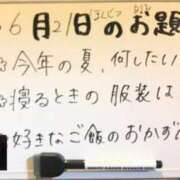 6月21日のお題
今年の夏、何したい
寝るときの服装は
好きなご飯のおかず